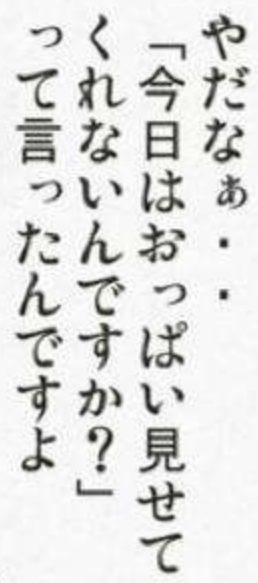 やだなぁ・・
「今日はおっぱい見せて
くれないんですか？」
って言ったんですよ